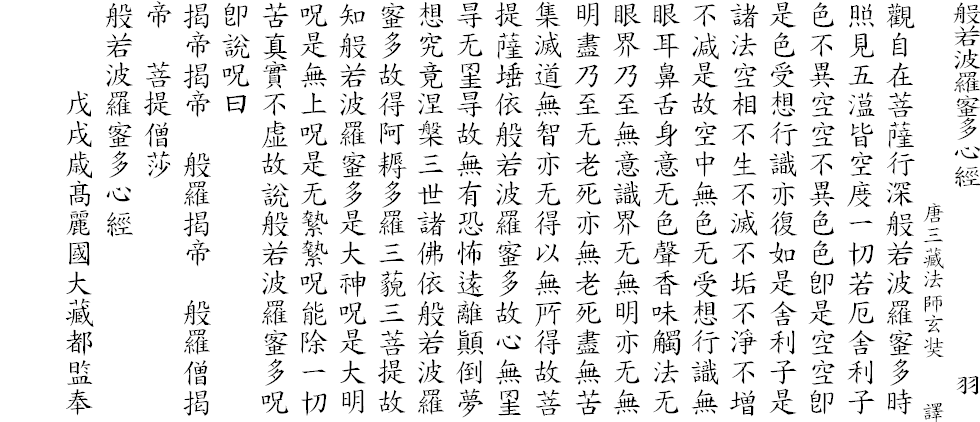 般若波羅蜜多心經 羽
唐三藏法師玄奘 譯
觀自在菩薩行深般若波羅蜜多時
照見五薀皆空度一切若厄舍利子
色不異空空不異色色卽是空空卽
是色受想行識亦復如是舍利子是
諸法空相不生不滅不垢不淨不增
不减是故空中無色无受想行識無
眼耳鼻舌身意无色聲香味觸法无
眼界乃至無意識界无無明亦无無
明盡乃至无老死亦無老死盡無苦
集滅道無智亦无得以無所得故菩
提薩埵依般若波羅蜜多故心無罣
㝵无罣㝵故無有恐怖遠離顚倒夢
想究竟涅槃三世諸佛依般若波羅
蜜多故得阿耨多羅三藐三菩提故
知般若波羅蜜多是大神呪是大明
呪是無上呪是无䓁䓁呪能除一切
苦真實不虛故說般若波羅蜜多呪
卽說呪曰
揭帝揭帝 般羅揭帝 般羅僧揭
帝 菩提僧莎
般若波羅蜜多心經
戊戌歲高麗國大藏都監奉